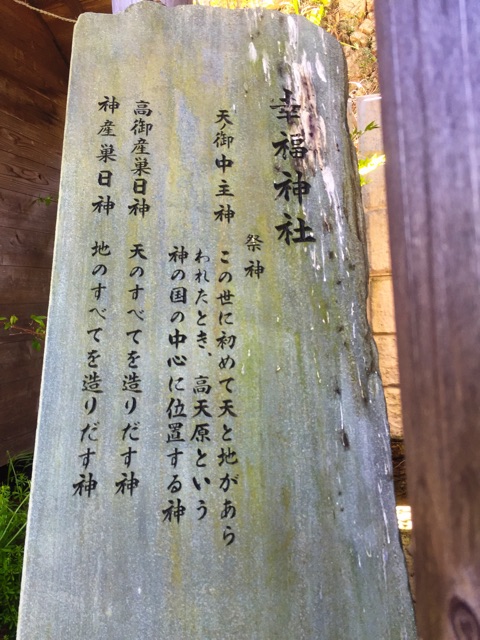 幸福神社
祭神
天御中主神 この世に初めて天と地があら
われたとき、高天原という
神の国の中心に位置する神
高御産巣日神 天のすべてを造りだす神
神産巣日神 地のすべてを造りだす神